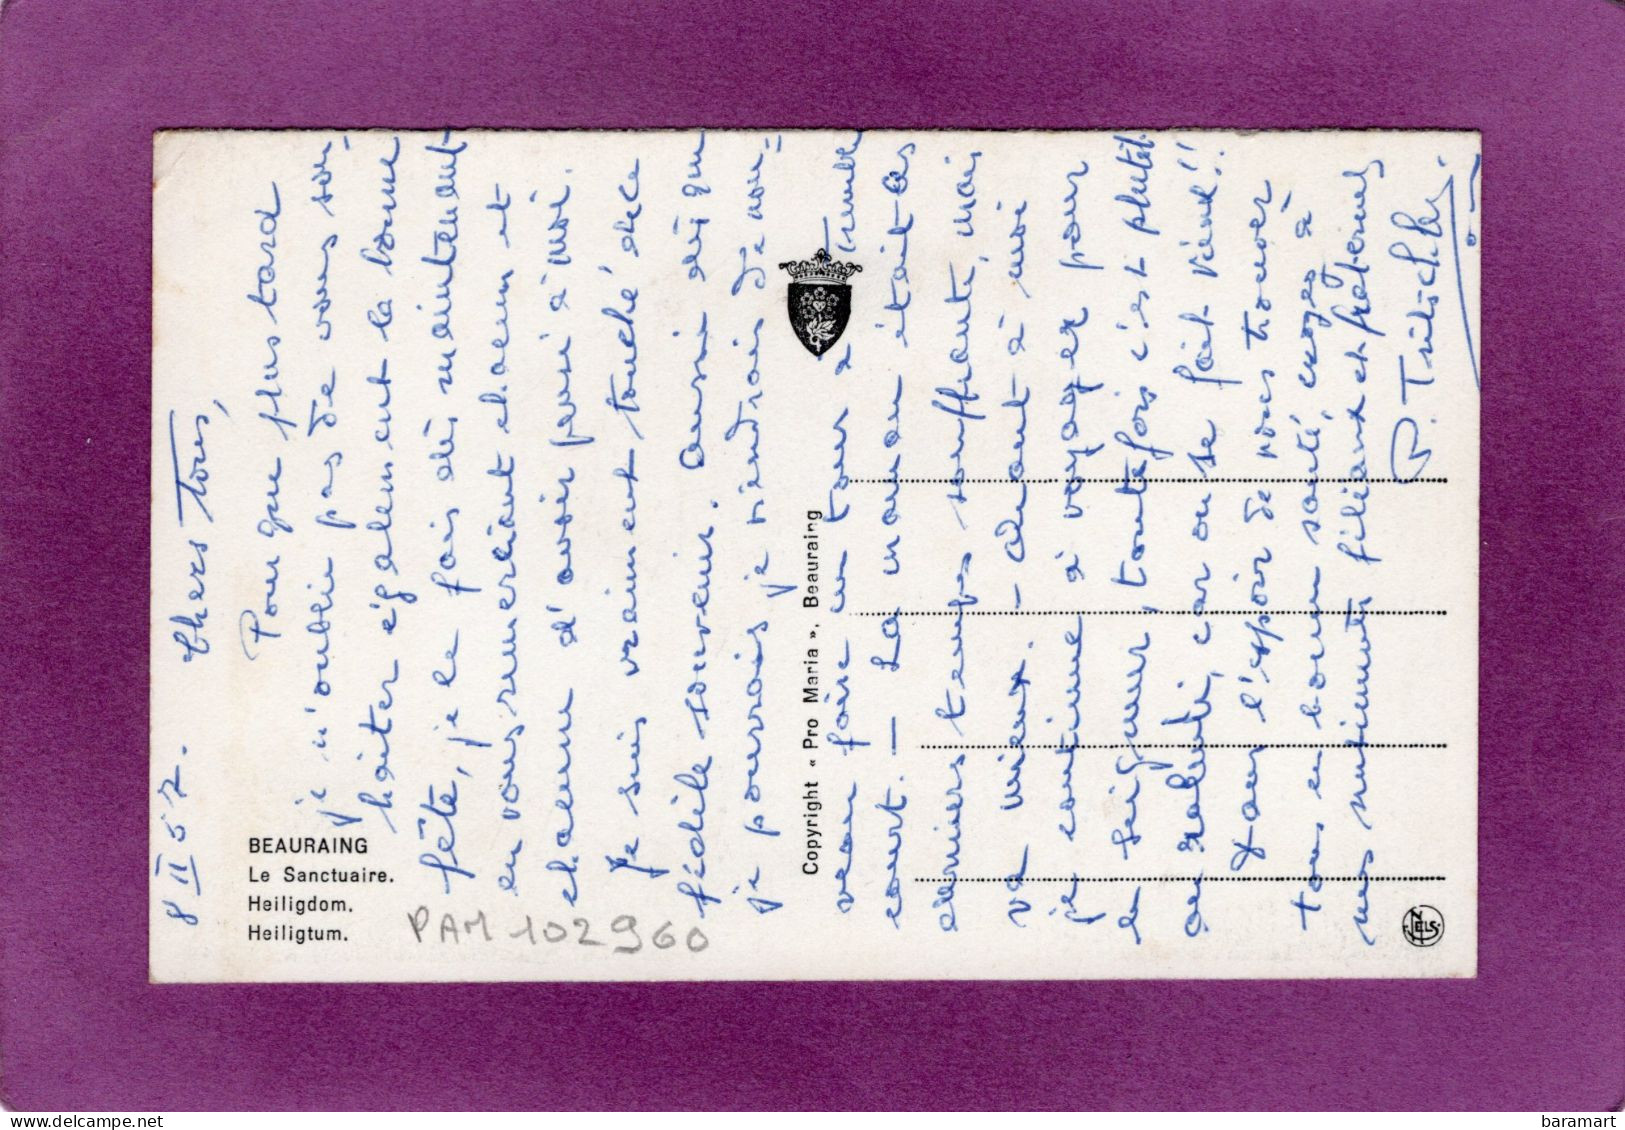 8 II 57. Chers tous,
Pour que plus tard
je n'oublie pas de vous sou-
haiter également la bonne
fête, je le fais dès maintenant
en vous remerciant chacun et
chacune d'avoir pensé à moi.
Je suis vraiment touché de ce
fidèle souvenir. Aussi dès que
je pourrais je viendrais de nou-
veau faire un tour à
court. - La maman était ces
derniers temps souffrante, mais
va mieux. - Quant à moi
je continue à voyager pour
le Seigneur, toutefois c'est plutôt
au ralenti, car on se fait vieux!!
Dans l'espoir de vous trouver
tous en bonne santé, croyez à
mes sentiments filiaux et fraternels
P.
BEAURAING
Le Sanctuaire.
Heiligdom.
Heiligtum.
PAM 102960
Copyright « Pro Maria ». Beauraing
ELS
delcampe.net
baramart